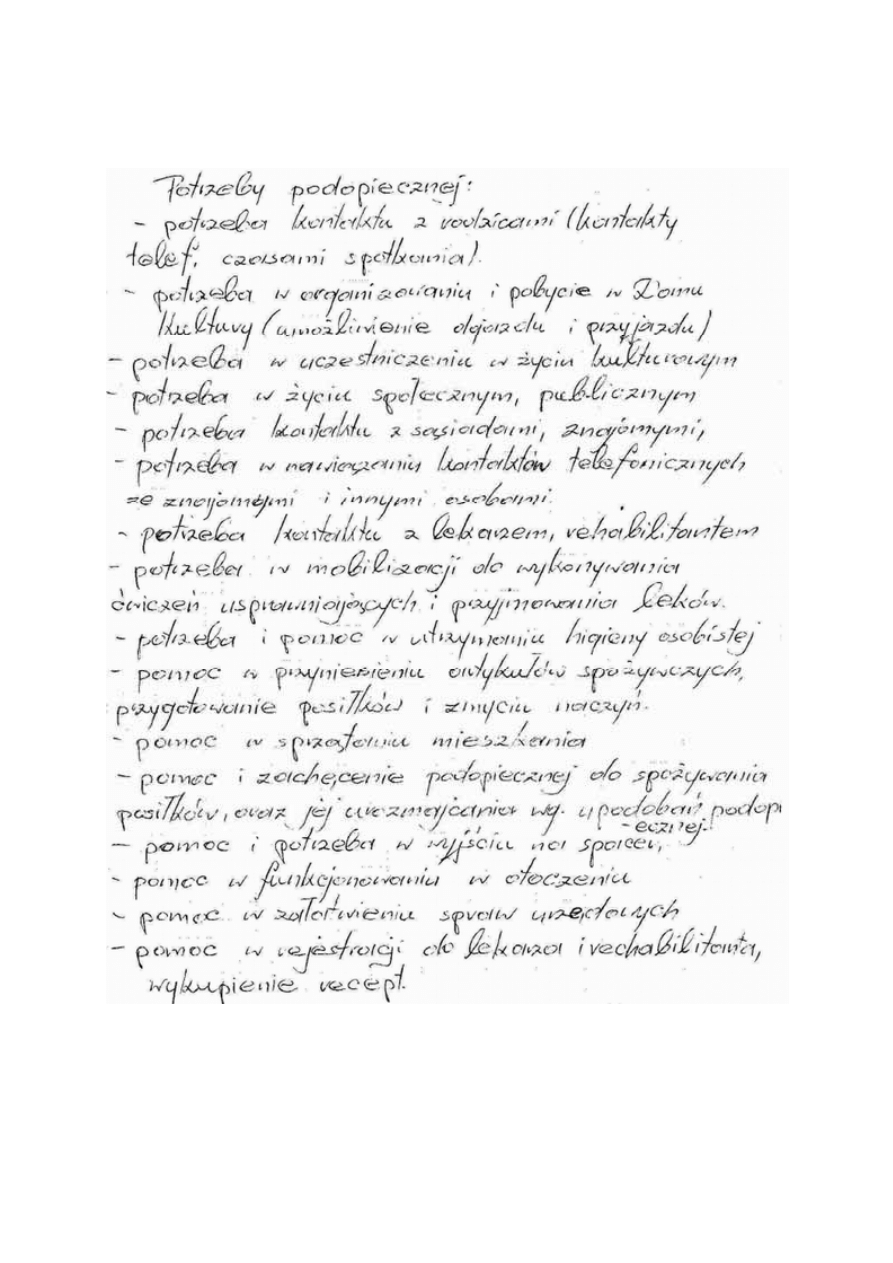 Potrzeby podopiecznej:
- potrzeba kontaktu z rodzicami (kontakty
telef, czasami spotkania).
- potrzeba w organizowaniu i pobycie w Domu
Kultury (umożliwienie dojazdu i przyjazdu)
- potrzeba w uczestniczeniu w życiu kulturowym
- potrzeba w życiu społecznym, publicznym
- potrzeba kontaktu z sąsiadami, znajomymi,
- potrzeba w nawiązaniu kontaktów telefonicznych
ze znajomymi i innymi osobami.
- potrzeba kontaktu z lekarzem, rehabilitantem
- potrzeba w mobilizacji do wykonywania
ćwiczeń usprawniających i przyjmowania leków.
- potrzeba i pomoc w utrzymaniu higieny osobistej
- pomoc w przyniesieniu artykułów spożywczych,
przygotowanie posiłków i zmyciu naczyń.
- pomoc w sprzątaniu mieszkania
- pomoc i zachęcenie podopiecznej do spożywania
posiłków, oraz jej urozmajcania wg. upodobań podopi
-ecznej.
- pomoc i potrzeba w wyjściu na spacer,
- pomoc w funkcjonowaniu w otoczeniu
- pomoc w załatwieniu spraw urzędowych
- pomoc w rejestracji do lekarza i rechabilitanta,
wykupienie recept.